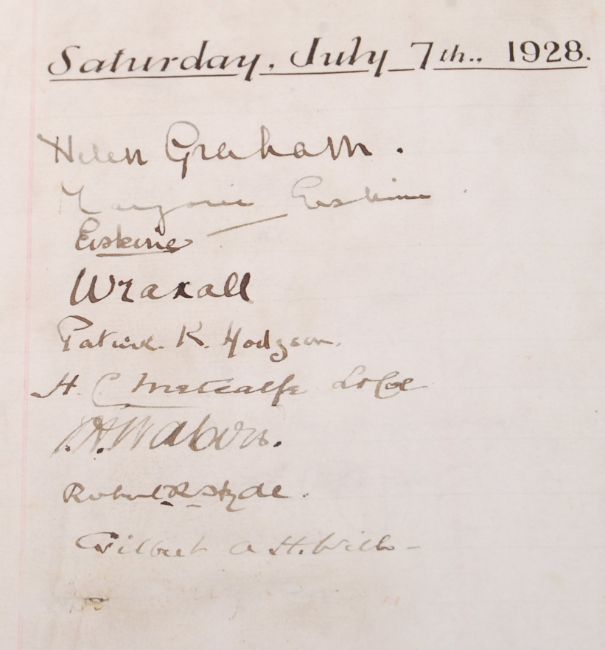 Saturday, July 7th., 1928.
Helen Graham.
Marjorie Erskine
Erskine
Wraxall
Patrick K. Hodgson.
H. C. Metcalfe
Robert R. Hyde.
Gilbert A. H. Wills